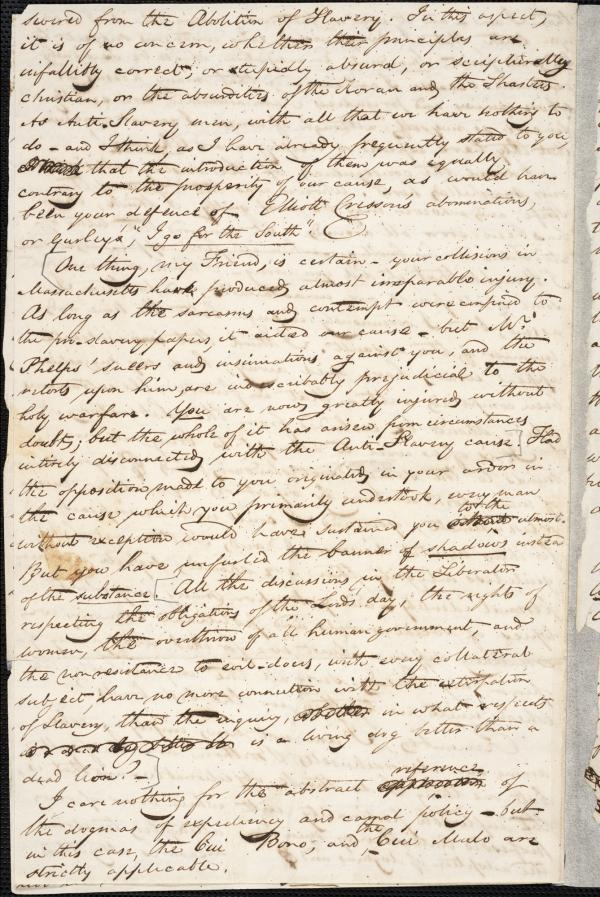 swered from the Abolition of Slavery. In this aspect,
it is of no concern, whether their principles are
infallibly correct; or stupidly absurd, or scripturally
christian, or the absurdities of the Koran and the Shasters.
As Anti-Slavery men, with all that we have nothing to
do - and I think, as I have already frequently stated to you,
that the introduction of them was equally
contrary to the prosperity of our cause, as would have
been your defence of Elliott Cresson's abominations,
or Gurley's, "I go for the South".
[One thing, my Friend, is certain - your collisions in
Massachusetts have produced almost irreparable injury.
As long as the sarcasms and contempt were confined to
the pro-slavery papers, it aided our cause - but Mr.
Phelps' sneers and insinuations against you, and the
retorts upon him, are indescribably prejudicial to the
holy warfare. You are now greatly injured, without
doubt; but the whole of it has arisen from circumstances
entirely disconnected with the Anti-Slavery cause.] Had
the opposition made to you originated in your ardor in
the cause which you primarily undertook, every man
without exception would have sustained you to the utmost.
But you have unfurled the banner of shadows instead
of the substance. [All the discussions in the Liberator
respecting the obligations of the Lord's day, the rights of
women, the overthrow of all human government, and
the non resistance to evil-doers, with every collateral
subject, have no more connection with the extirpation
of Slavery, than the inquiry, in what respects
is a living dog better than a
dead lion? -]
I care nothing for the abstract reference of
the dogmas of expediency and carnal policy - but
in this case, the Cui Bono, and the Cui Malo are
strictly applicable.